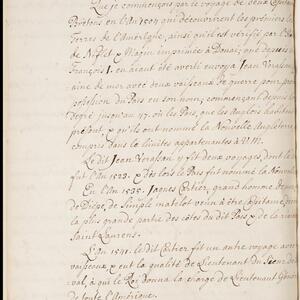 Que je commençois par le voyage de deux Capitaines
Bretons en l'An 1504 qui découvrirent les premières
Terres de l'Amerique, ainsi qu'il est verifié par l'
de Niflet & Magin imprimée à Douai, que depuis
François I. en aiant été averti envoya Jean Verasan
aine de mer avec deux vaisseaux de guerre pour
possession du Païs en son nom, commençant depuis
degré jusqu'au 47. où les Païs, que les Anglois habitent
présent, & qu'ils ont nommé la Nouvelle Angleterre
compris dans les limites appartenantes à V.M.
Le dit Jean Verasan y fit deux voyages, dont le
fut l'An 1523. & dès lors le Païs fut nommé la Nouvelle
En l'An 1535. Jaques Cartier, grand homme de
de Diepe, de simple matelot vient à être Capitaine
la plus grande partie des côtes du dit Païs & de la
Saint Laurens.
L'An 1541. le dit Cartier fit un autre voyage avec
vaisseaux, & eut la qualité de Lieutenant du Sieur de
val, à qui le Roy donna la charge de Lieutenant Général
de toute l'Amérique.